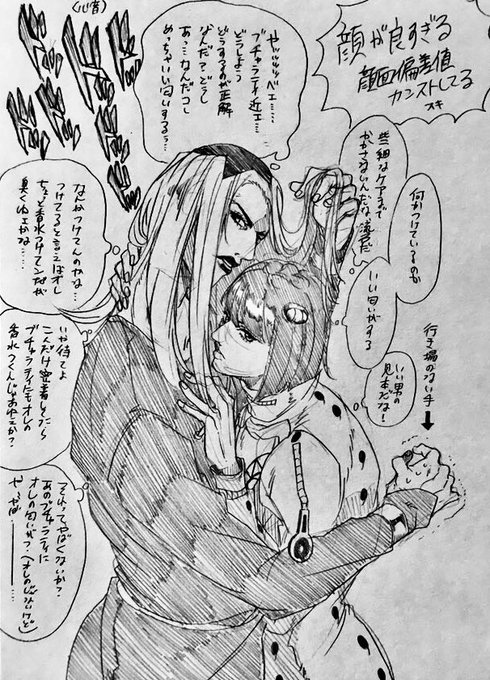 顔が良すぎる
顔面偏差値
カンストしてる
スキ
(心音)
ドド
ドド
ドド
ドド
ヤッッッッベェ…
ブチャラティ近ェ…
どうしよう
どうするのが正解
なんだ?どうし
あっ…なんだコレ
めっちゃいい匂いするぅ…
何かつけているのか
些細なケアまで
かかさないんだな、凄えだ
いい匂いがする
いい男の
見本だな!
行き場のない手
なんかつけてんのかな…
つけてるって言えばオレ
ちょっと香水つけてンだが
臭くねェかな……
いや待てよ
こんだけ密着してたら
ブチャラティにもオレの
香水つくんじゃねェか?
それってやばくないか?
あのブチャラティに
オレの匂いが?(オレのじゃないけど)
や、やば……